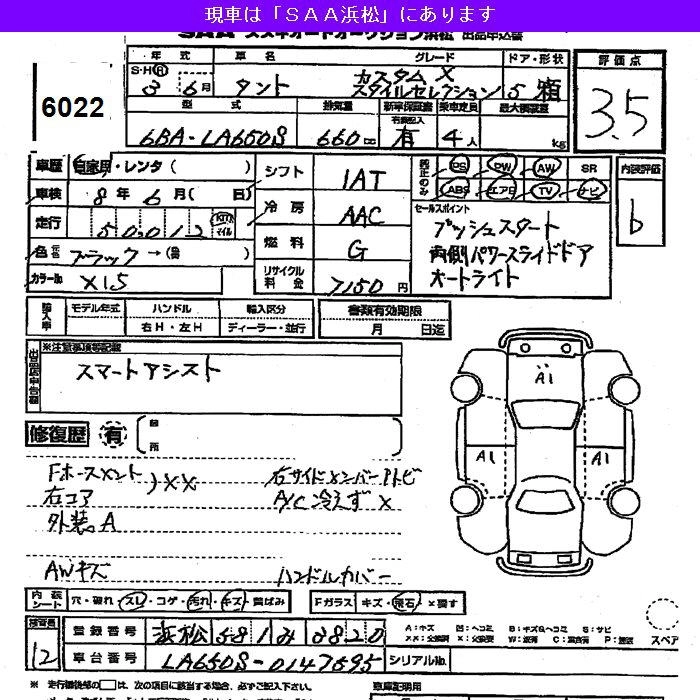 現車は「ＳＡＡ浜松」にあります
SAA スズキオートオークション浜松 出品申込書
6022
年式 車名 グレード ドア・形状 評価点
S・H・R 3年 6月 タント カスタムX スタイルセレクション 5 箱 3.5
型式 排気量 新車保証書 乗車定員 最大積載量
6BA-LA650S 660cc 有 4人 kg
車歴 自家用・レンタ( )
車検 8年 6月( 日)
走行 50012 km マイル
色 ブラック →( )
カラーNo. X15
シフト 1AT
冷房 AAC
燃料 G
リサイクル料金 7150円
純正のみ PS PW AW SR
ABS エアB TV ナビ
内装評価 b
セールスポイント
プッシュスタート
両側パワースライドドア
オートライト
輸入車 モデル年式 ハンドル 輸入区分 書類有効期限
右H・左H ディーラー・並行 月 日迄
※注意事項等記載
スマートアシスト
修復歴 有
箇所
Fホースメント )××
右コア
外装A
AWキズ
右サイドメンバーアトビ
A/C 冷えず ×
ハンドルカバー
A1
A1 A1
内装シート 穴・破れ・スレ・コゲ・汚れ・キズ・黄ばみ
Fガラス キズ・飛石・×要す
検査員 12
登録番号 浜松 581 み 3820
車台番号 LA650S-0147595 シリアルNo.
A:キズ 凹:ヘコミ B:キズ&ヘコミ S:サビ
スペア
車両証明用